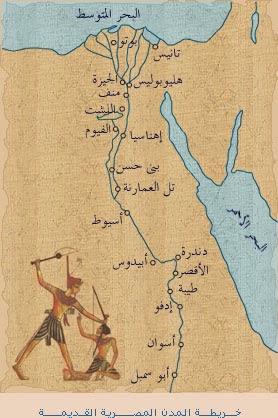 البحر المتوسط
بوتو
تانيس
هليوبوليس
الجيزة
منف
اللشت
الفيوم
إهناسيا
بنى حسن
تل العمارنة
أسيوط
البحر الأحمر
دندرة
أبيدوس
الأقصر
طيبة
إدفو
أسوان
أبو سمبل
خريطة المدن المصرية القديمة